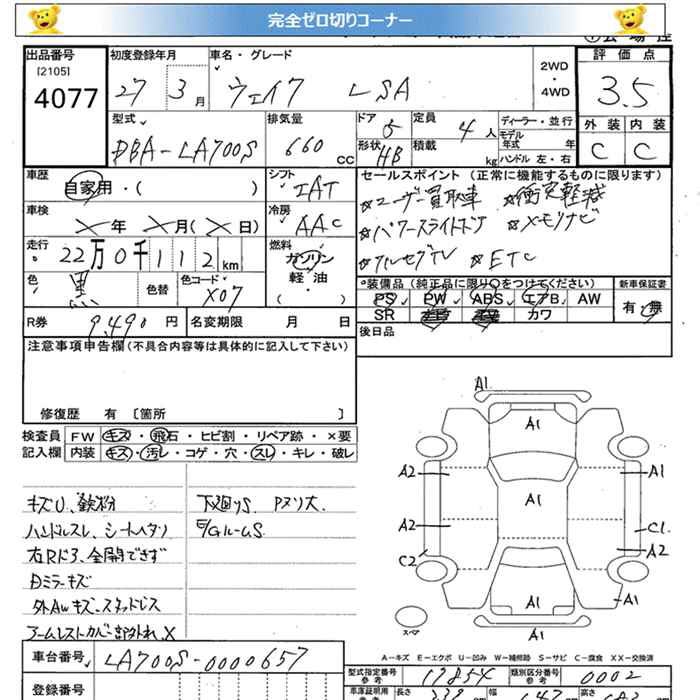 完全ゼロ切りコーナー
出品番号 初度登録年月 車名・グレード 2WD・4WD 評価点
[2105]
4077 27 3月 ウェイク LSA 3.5
外装 内装
C C
型式 排気量 ドア 定員 ディーラー・並行
DBA-LA700S 660cc 5 4人 モデル年式 年
形状 積載 kg ハンドル 左・右
HB
車歴 シフト セールスポイント (正常に機能するものに限ります)
自家用・( ) IAT ☆ユーザー買取車 ☆衝突軽減
車検 冷房 ☆パワースライドドア ☆メモリナビ
X年 X月(X日) AAC ☆フルセグTV ☆ETC
走行 燃料
22万0千112km ガソリン
軽・油
( )
色 黒 色替 色コード X07
装備品 (純正品に限り○をつけてください) 新車保証書
PS PW ABS エアB AW 有・無
SR カワ
R券 9,490円 名変期限 月 日 後日品
注意事項申告欄(不具合内容等は具体的に記入して下さい)
修復歴 有 〔箇所 〕
検査員 FW キズ・飛石・ヒビ割・リペア跡・×要
記入欄 内装 キズ・汚レ・コゲ・穴・スレ・キレ・破レ
キズU、鉄粉 下廻りS、Pヌリ大.
ハンドルスレ、シートヘタリ E/GルームS
右Rドア、全開できず
Dミラーキズ
外Awキズ、スタッドレス
アームレストカバー部外れ、X
A1
A1
A2 A1
A1
A2 C1
C2 A2
A1 A1
スペア A1
A-キズ E-エクボ U-凹み W-補修跡 S-サビ C-腐食 XX-交換済
車台番号 LA700S-0000657
型式指定番号 参考 17854 類別区分番号 参考 0002
登録番号 車庫証明用 長さ 339 幅 147 高さ 183